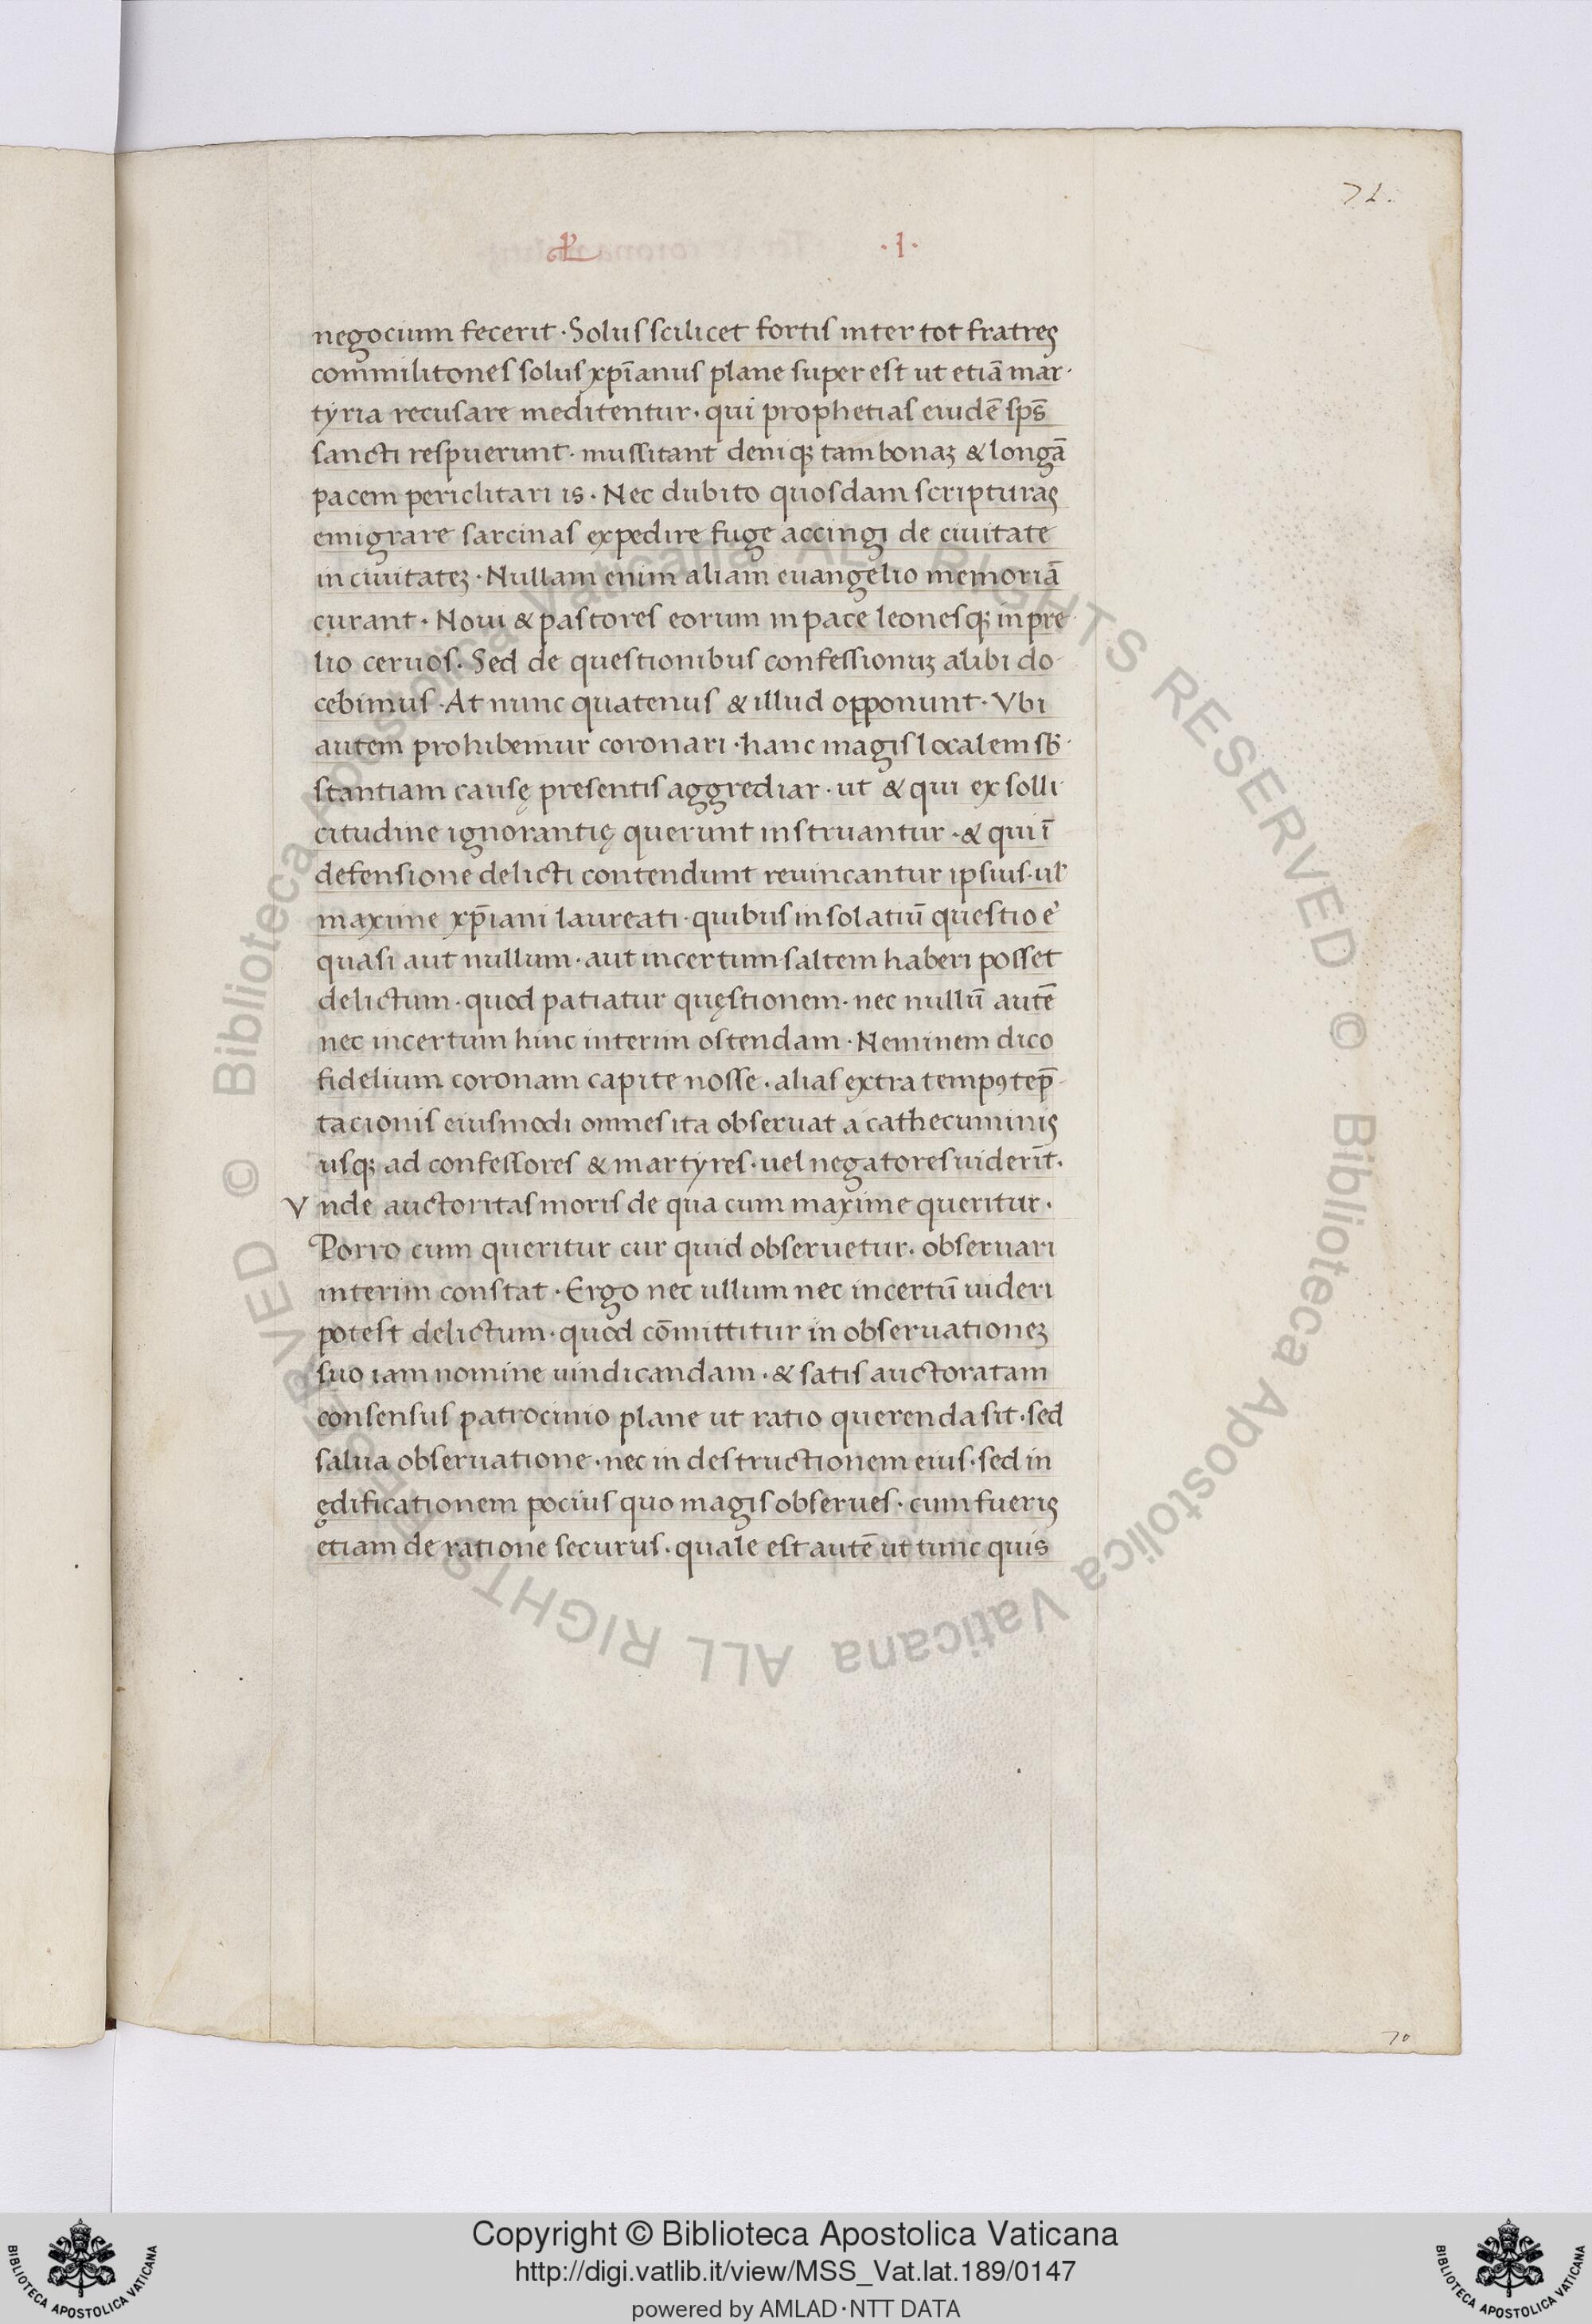 71.
L. .I.
negocium fecerit · Solus scilicet fortis inter tot fratres
commilitones solus xp̄ianus plane super est ut etiā mar-
tyria recusare meditentur · qui prophetias eiudē sps̄
sancti respuerunt · mussitant deniqꝫ tam bonaꝫ & longā
pacem periclitari is · Nec dubito quosdam scripturas
emigrare sarcinas expedire fuge accingi de ciuitate
in ciuitateꝫ · Nullam enim aliam euangelio memoriā
curant · Noui & pastores eorum in pace leonesqꝫ in pre-
lio ceruos · Sed de questionibus confessionuꝫ alibi do-
cebimus · At nunc quatenus & illud opponunt · Vbi
autem prohibemur coronari · hanc magis localem sb̄-
stantiam causę presentis aggrediar · ut & qui ex solli-
citudine ignorantię querunt instruantur · & qui ī
defensione delicti contendunt reuincantur ipsius · ul'
maxime xp̄iani laureati · quibus in solatiū questio ē
quasi aut nullum · aut incertum saltem haberi posset
delictum · quod patiatur quęstionem · nec nullū autē
nec incertum hinc interim ostendam · Neminem dico
fidelium coronam capite nosse · alias extra tempꝯ tep̄-
tacionis eiusmodi omnes ita obseruat a cathecuminis
usqꝫ ad confessores & martyres · uel negatores uiderīt ·
Vnde auctoritas moris de qua cum maxime queritur ·
Porro cum queritur cur quid obseruetur · obseruari
interim constat · Ergo nec ullum nec incertū uideri
potest delictum · quod cōmittitur in obseruationeꝫ
suo iam nomine uindicandam · & satis auctoratam
consensus patrocinio plane ut ratio querenda sit · sed
salua obseruatione · nec in destructionem eius · sed in
ędificationem pocius quo magis obserues · cum fueris
etiam de ratione securus · quale est autē ut tunc quis
70
© Biblioteca Apostolica Vaticana ALL RIGHTS RESERVED © Biblioteca Apostolica Vaticana ALL RIGHTS RESERVED
Copyright © Biblioteca Apostolica Vaticana
http://digi.vatlib.it/view/MSS_Vat.lat.189/0147
powered by AMLAD·NTT DATA
BIBLIOTECA APOSTOLICA VATICANA
BIBLIOTECA APOSTOLICA VATICANA